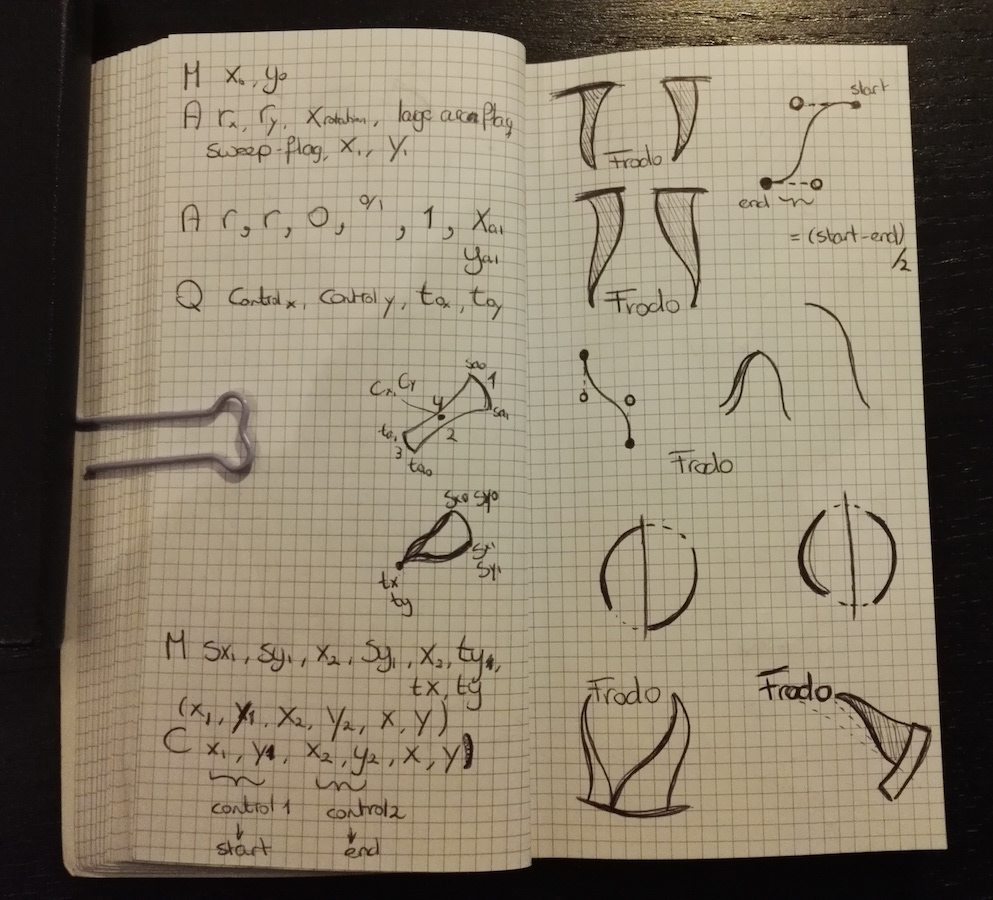 M x₀, y₀
A rx, ry, xrotation, large arc flag
sweep-flag, x₁, y₁
A r, r, 0, 0/1, 1, xa₁
ya₁
Q Controlx, Controly, tox, toy
sa0
1
Cx, Cy
4
sa1
ta1
2
3
ta0
sx0 sy0
sx1
sy1
tx
ty
M sx₁, sy₁, x₂, sy₁, x₂, ty₁,
tx, ty
(x₁, y₁, x₂, y₂, x, y)
C x₁, y₁, x₂, y₂, x, y)
control 1
control2
start
end
Frodo
start
end
= (start-end)
/2
Frodo
Frodo
Frodo
Frodo